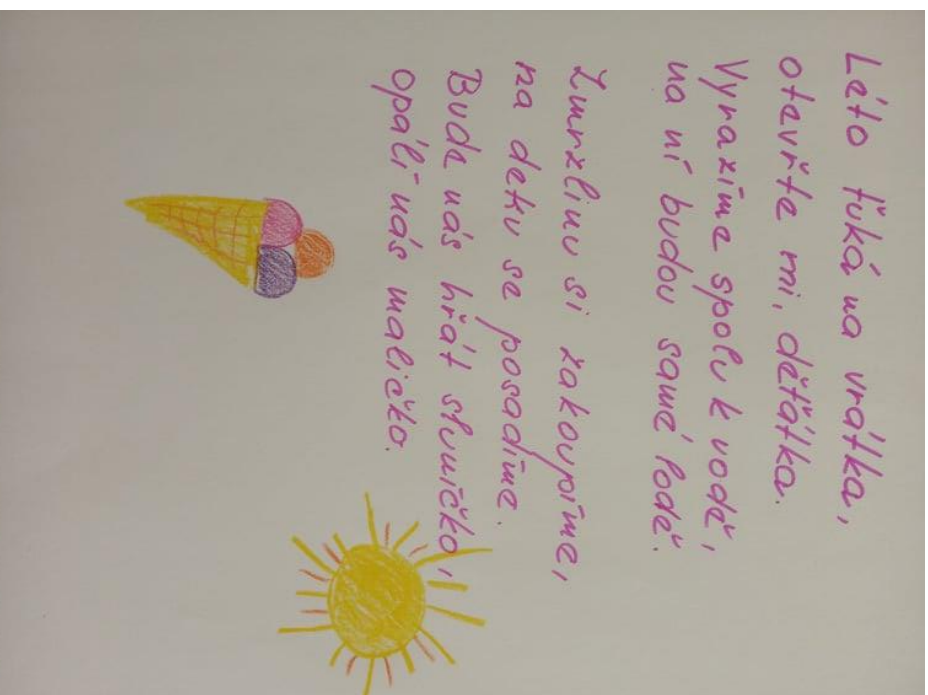 Léto ťuká na vrátka,
otevřte mi, děťátka.
Vyrazíme spolu k vodě,
na ní budou samé lodě.
Zmrzlinu si zakoupíme,
na deku se posadíme.
Bude nás hřát sluníčko,
opálí nás maličko.